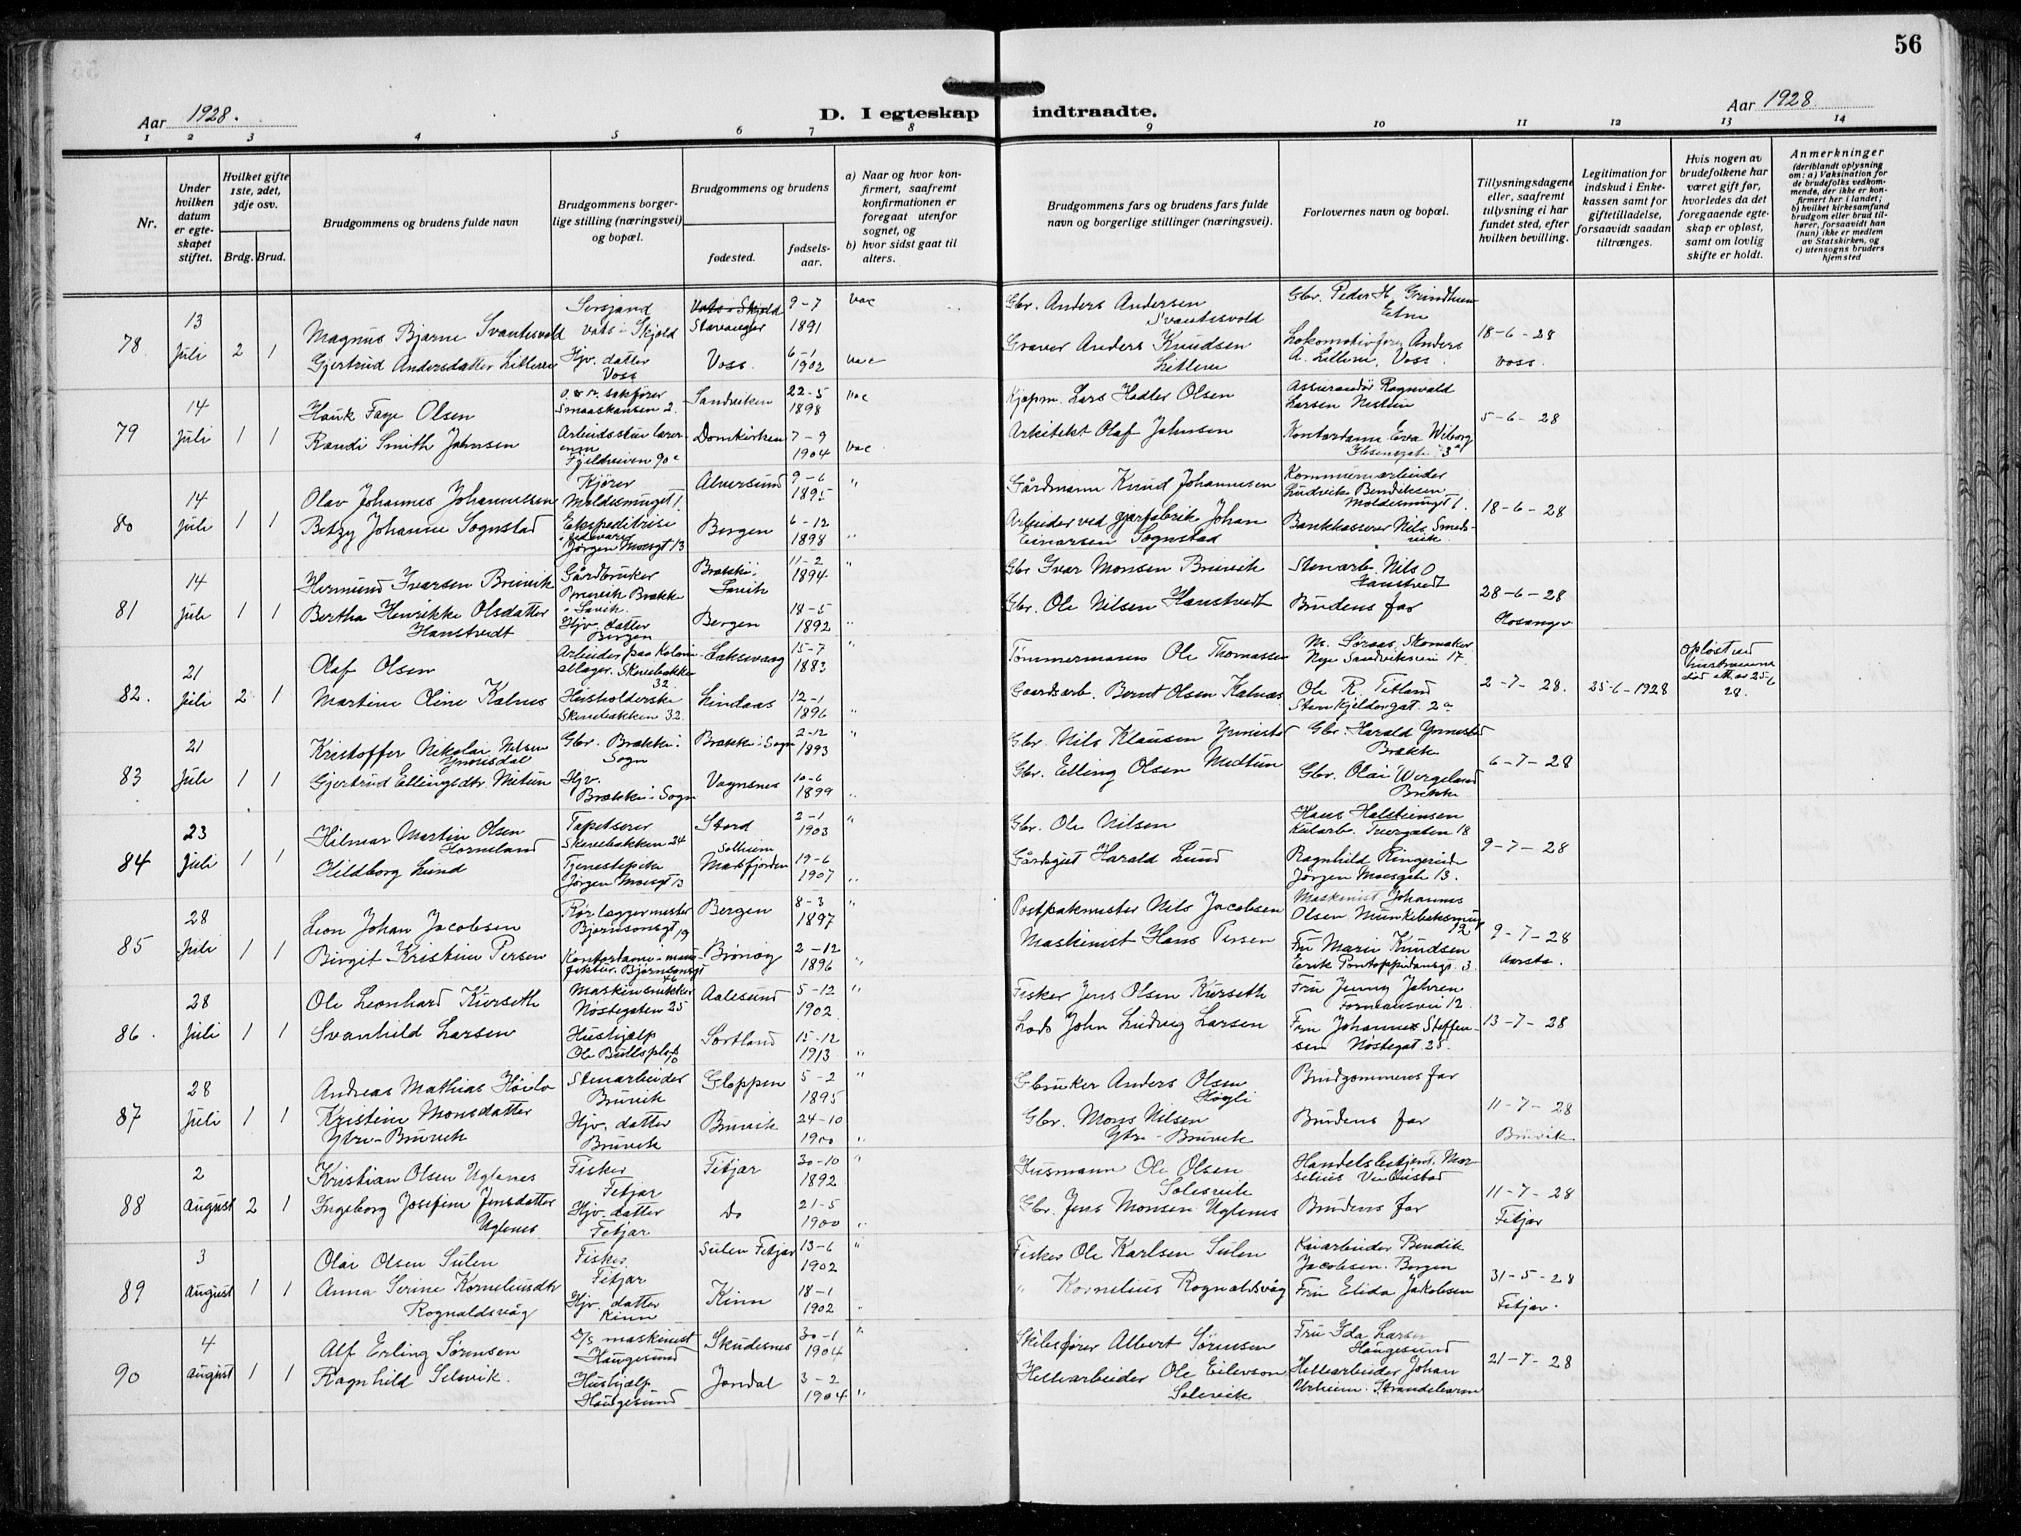 56
Aar 1928.
D. I egteskap indtraadte.
Aar 1928
1 2 3 4 5 6 7 8 9 10 11 12 13 14
Nr.
Under hvilken datum er egteskapet stiftet.
Hvilket gifte 1ste, 2det, 3dje osv.
Brdg. Brud.
Brudgommens og brudens fulde navn
Brudgommens borgerlige stilling (næringsvei) og bopæl.
Brudgommens og brudens
fødested.
fødselsaar.
a) Naar og hvor konfirmert, saafremt konfirmationen er foregaat utenfor sognet, og
b) hvor sidst gaat til alters.
Brudgommens fars og brudens fars fulde navn og borgerlige stillinger (næringsvei).
Forlovernes navn og bopæl.
Tillysningsdagene eller, saafremt tillysning ei har fundet sted, efter hvilken bevilling.
Legitimation for indskud i Enkekassen samt for giftetilladelse, forsaavidt saadan tiltrænges.
Hvis nogen av brudefolkene har været gift før, hvorledes da det foregaaende egteskap er opløst, samt om lovlig skifte er holdt.
Anmerkninger (deriblandt oplysning om: a) Vaksination for de brudefolks vedkommende, der ikke er konfirmert her i landet; b) hvilket kirkesamfund brudgom eller brud tilhører, forsaavidt han (hun) ikke er medlem av Statskirken, og c) utensogns bruders hjemsted
78 13 Juli 2 1
Magnus Bjarne Svantesvold
Sersjand Vats i Skjold
Vats i Skjold Stavanger
9-7 1891 vac
Gbr. Anders Andersen Svantesvold
Gbr. Peder H. Grindheim Etne
Gjertrud Andersdatter Litlere
Hjv. datter Voss
Voss.
6-1 1902 vac
Graver Anders Knudsen Litlere
Lokomotivfører Anders A. Litlere, Voss.
18-6-28 Voss.
79 14 Juli 1 1
Hauk Faye Olsen
O.r. sakfører Smaaskansen 2.
Sandviken
22-5 1898 vac
Kjøpm. Lars Hatler Olsen
Assurandør Ragnvald Larsen Nestun
Randi Smith Jahnsen
Arbeidsstue lærerinne Fjeldveien 90c
Domkirken
7-9 1904 vac
Arkitekt Olaf Jahnsen
Kontordame Eva Wiborg
5-6-28
80 14 Juli 1 1
Olav Johannes Johannesen
Kjører Moldesmuget 1.
Alversund
9-6 1895 "
Gårdmann Knud Johannesen
Kommunearbeider Ludvik Bendiksen Moldesmuget 1.
Betzy Johanne Sognstad
Ekspeditrise i fedevarer Jørgen Moesgt 13
Bergen
6-12 1898 "
Arbeider ved gjærfabrik Johan Einarsen Sognstad
Bankkasserer Nils Smedsvik
18-6-28
81 14 Juli 1 1
Hermund Ivarsen Brunvik
Gårdbruker Brekke i Lavik.
Brekke i Lavik
11-2 1894 "
Gbr Ivar Monsen Brunvik
Stenarb. Nils O Hanstvedt
Bertha Henrikke Olsdatter Hanstvedt
Hjv. datter Bergen
Bergen
18-5 1892 "
Gbr. Ole Nilsen Hanstvedt
Brudens far
28-6-28 Hosanger
82. 21 Juli 2 1
Olaf Olsen
Arbeider paa Kolonallager. Skivebakken 32
Laksevaag
15-7 1883
Tømmermann Ole Thomassen
M. Søraas, Skomaker Nye Sandviksvei 17.
Martine Oline Kalnes
Husholderske Skivebakken 32.
Lindaas
12-1 1896 "
Gaardsarb. Bernt Olsen Kalnes
Ole R. Titland Stenkjeldergat. 2a
2-7-28.
25-6-1928
Opløst ved hustruens død 25-6 28.
83 21 Juli 1 1
Kristoffer Nikolai Nilsen Ynnisdal
Gbr. Brekke i Sogn
Brekke i Sogn
2-12 1893 "
Gbr. Nils Klausen
Gbr. Harald Brekke
Gjertrud Ellingsdtr. Metun
Hjv. Brekke i Sogn
Vagnsnes
10-6 1899 "
Gbr. Elling Olsen Medtun
Gbr. Olai Wergeland Brekke
6-7-28
84 23 Juli 1 1
Hilmar Martin Olsen Horneland
Tapetserer Skivebakken 24
Stord
2-1 1903 "
Gbr. Ole Nilsen
Hans Halstensen
Hildborg Lund
Tjenestepike Jørgen Moesgt 13
Solheim Masfjorden
19-6 1907 "
Gårdgut Harald Lund
Ragnhild Jørgen Moesgate 13.
9-7-28
85 28 Juli 1 1
Leon Johan Jacobsen
Rørleggermester Bjørnsonsgt 19
Bergen
8-3 1897 "
Postpakmester Nils Jacobsen
Maskinist Johannes Olsen
Birgit Kristine Persen
Kontordame Bjørnsonsgt 46
Brønøy
2-12 1896 "
Maskinist Hans Persen
Fru Marie Knudsen Erik Pontoppidansgt. 3.
9-7-28 Aarsta.
86. 28 Juli 1 1
Ole Leonhard Kurseth
Maskinsnikker Nøstegaten 25
Aalesund
5-12 1902 "
Fisker Jens Olsen Kurseth
Fru Jenny Jahren 12.
Svanhild Larsen
Hushjælp Ole Bullsplass
Sortland
15-12 1913 "
Lods John Ludvig Larsen
Fru Johanne Steffensen Nøstegat. 25.
13-7-28
87 28 Juli 1 1
Andreas Mathias Høilo
Stenarbeider Bruvik
Gloppen
5-2 1895 "
Gbruker Anders Olsen Høgli
Brudgommens far
Kristine Monsdatter Ytre-Bruvik
Hjv. datter Bruvik
Bruvik
24-10 1900 "
Gbr. Mons Nilsen Ytre-Bruvik
Brudens far
11-7-28 Bruvik.
88 2 August 2 1
Kristian Olsen Uglenes
Fisker Fitjar
Fitjar
30-10 1892 "
Husmann Ole Olsen Solesvik
Ingeborg Josefine Jensdatter Uglenes
Hjv. datter Fitjar
Do
21-5 1900 "
Gbr. Jens Monsen Uglenes
Brudens far
11-7-28 Fitjar
89 3 August 1 1
Olai Olsen Sulen
Fisker Fitjar
Sulen Fitjar
13-6 1902 "
Fisker Ole Karlsen Sulen
Kaiarbeider Bendik Jacobsen. Bergen
Anna Serine Korneliusdtr Rognaldsvåg
Hjv. datter Kinn
Kinn
18-1 1902 "
" Kornelius Rognaldsvåg
Fru Elida Jakobsen
31-5-28 Fitjar.
90 4 August 1 1
Alf Erling Sørensen
D/S maskinist Haugesund
Skudesnes
30-1 1904 "
Skibsfører Albert Sørensen
Fru Ida Larsen Haugesund
Ragnhild Selsvik.
Hushjælp Haugesund
Jondal
3-2 1904 "
Hellearbeider Ole Eilevson Solsvik
Hellearbeider Johan
21-7-28